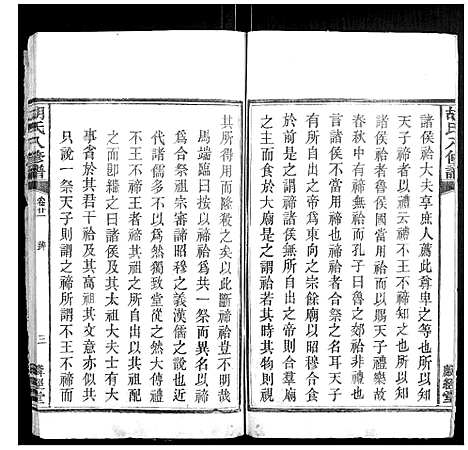 胡氏八修譜
諸侯祫大夫享庶人薦此尊卑之等也所以知
天子禘者以禮云禘不王不禘知之也所以知
諸侯祫者魯侯國當用祫而以賜天子禮樂故
春秋中有禘無祫孔子曰魯之郊禘非禮也
所以知大夫享庶人薦者此尊卑之名耳天子
有所自出之帝為東向之尊餘廟以昭穆合食
於前是之謂禘諸侯無所自出之帝則合羣廟
之主共享於大廟是之謂祫若其時祭則曰祠
敘經堂
其所得用而隆殺之矣以此斷禘祫豈不明哉
馬端臨曰按以禘祫為共一祭而異名以禘
為合祭祖宗審諦昭穆之義漢儒之說也近
代諸儒多不以為然獨致堂從之然大傳禮
不王不禘王者禘其祖之所自出以其祖配
之而即繼之曰諸侯及其太祖大夫士有大
事省於其君干祫及其高祖其文意亦似共
只說一祭天子則謂之禘所謂不王不禘而
胡氏八修譜
卷廿
辨
三